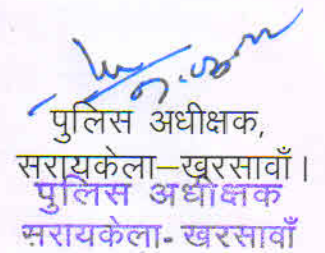 पुलिस अधीक्षक,
सरायकेला–खरसावाँ।
पुलिस अधीक्षक
सरायकेला- खरसावाँ